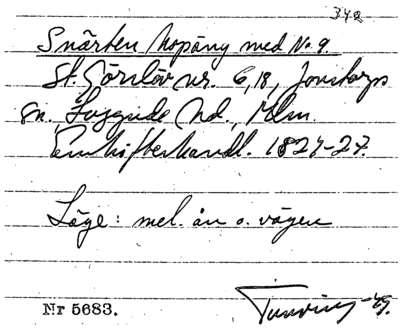 342
Snärten hopäng med No 9.
St. Görslöv nr. 6, 18, Jonstorps
sn, Luggude hd., Mlm.
Enskifteshandl. 1824-27.
Läge: mel. ån o. vägen
Tuneld -49.
Nr 5683.